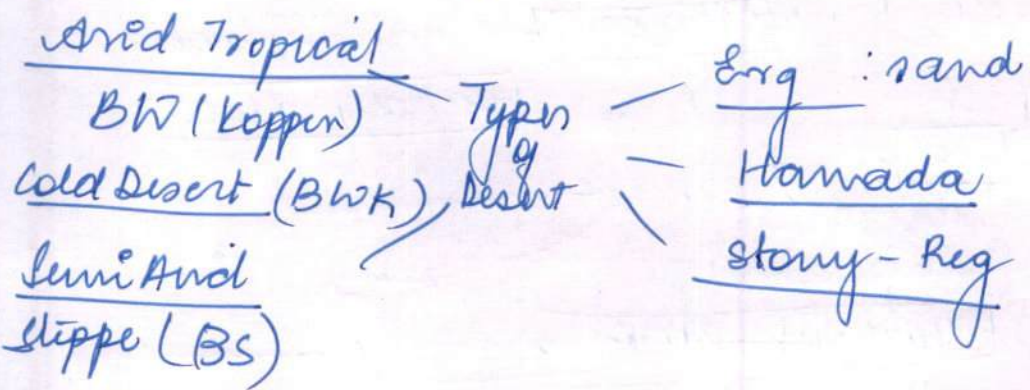 Arid Tropical
BW (Koppen)
Cold Desert (BWK)
Semi Arid
Steppe (BS)
Types
of
Desert
Erg : sand
Hamada
stony - Reg